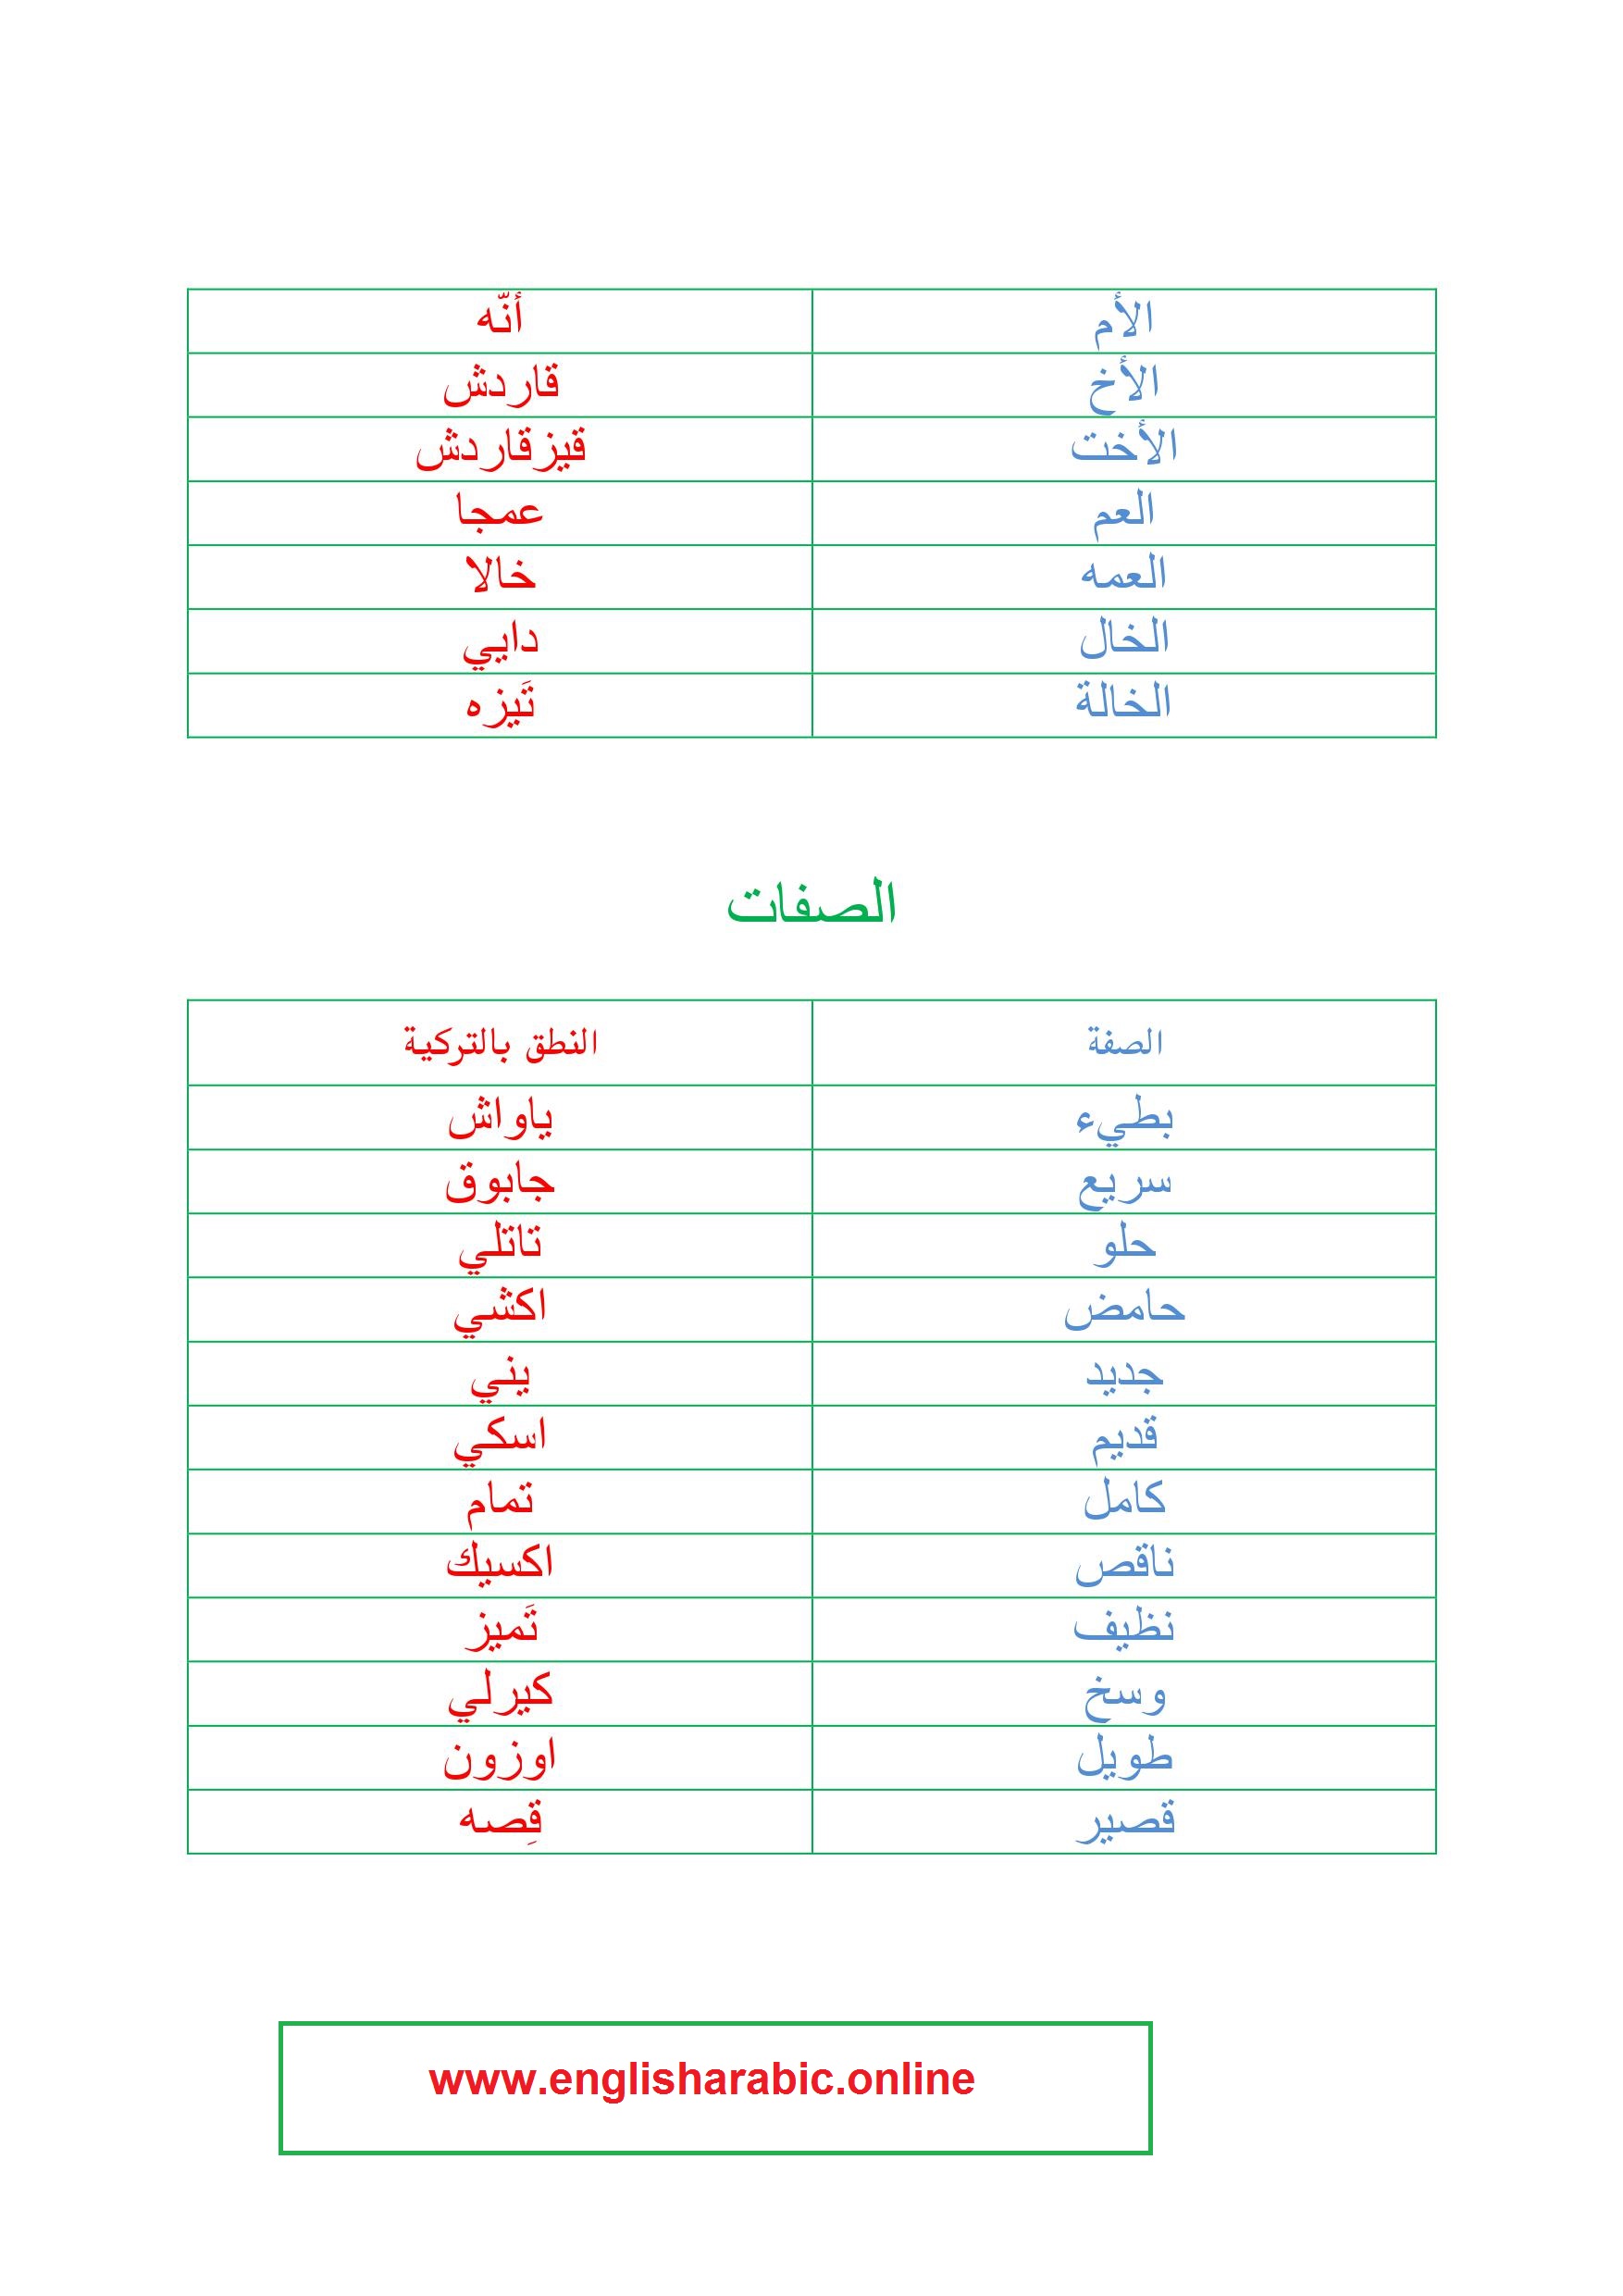 الأم أنّه
الأخ قاردش
الأخت قيزقاردش
العم عمجا
العمه خالا
الخال دايي
الخالة تَيزه
الصفات
الصفة النطق بالتركية
بطيء ياواش
سريع جابوق
حلو تاتلي
حامض اكشي
جديد يني
قديم اسكي
كامل تمام
ناقص اكسيك
نظيف تَميز
وسخ كيرلي
طويل اوزون
قصير قِصه
www.englisharabic.online